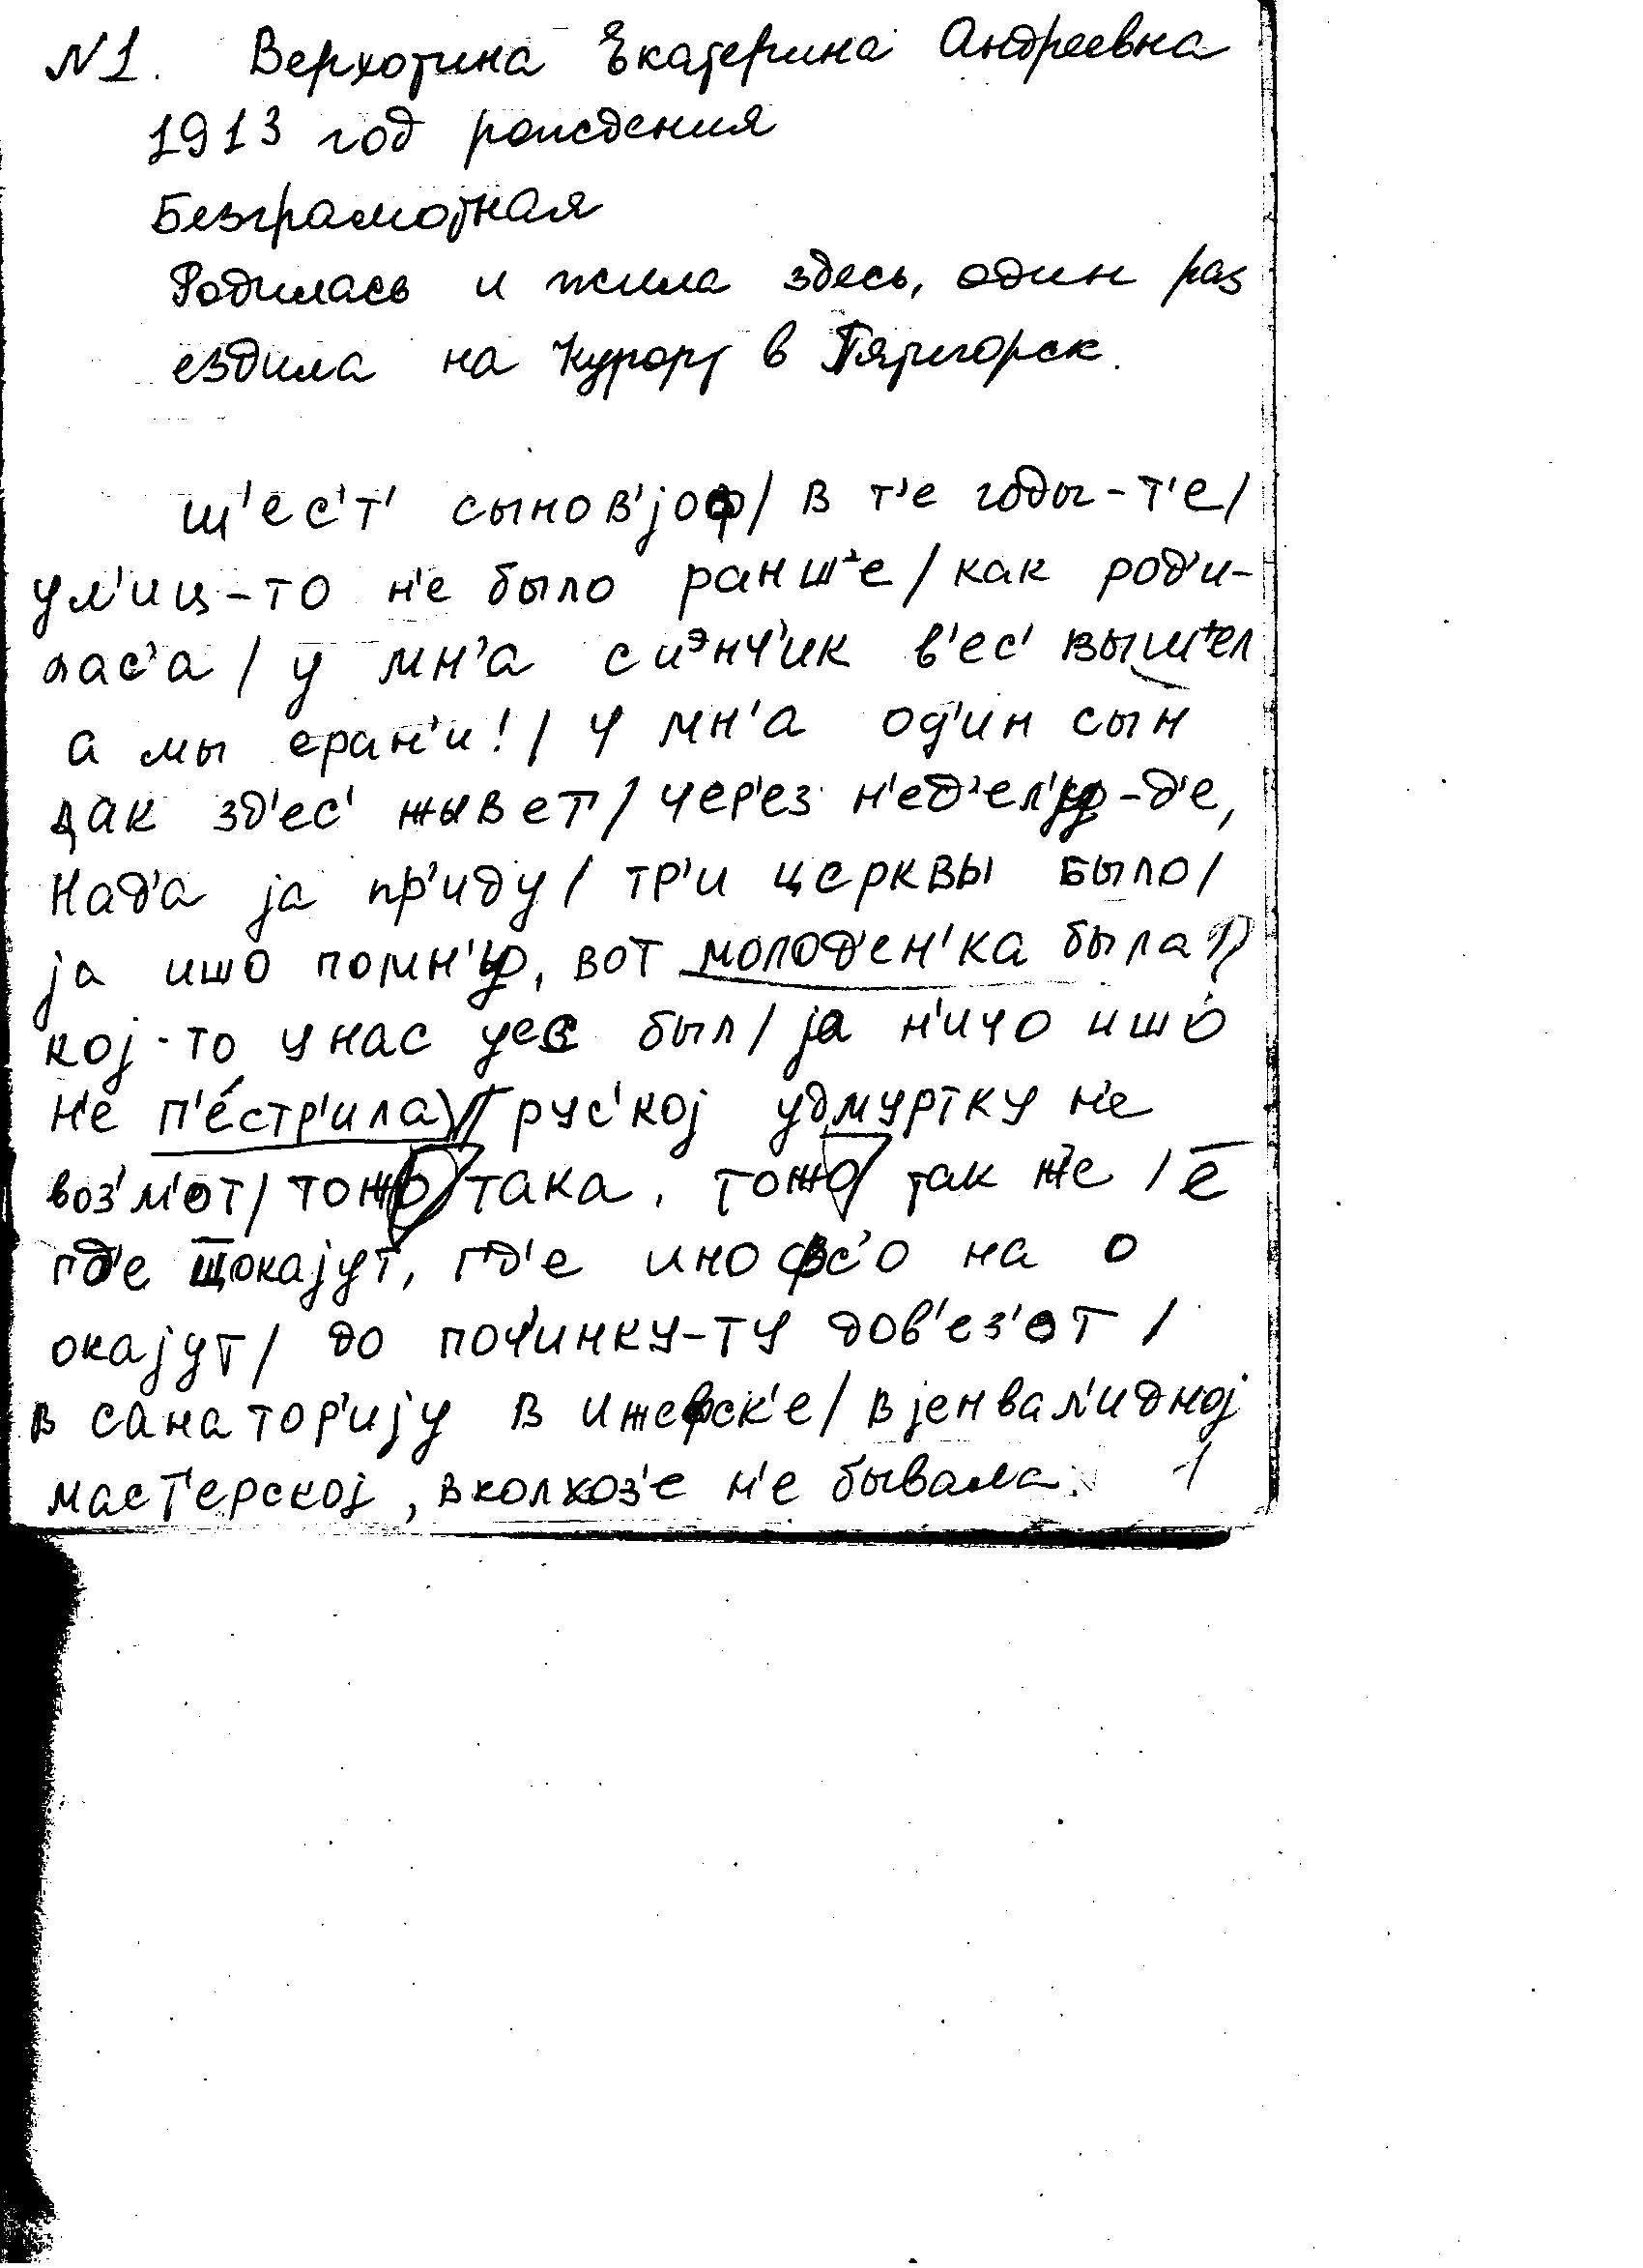 N1. Верхотина Екатерина Андреевна
1913 год рождения
Безграмотная
Родилась и жила здесь, один раз
ездила на курорт в Пятигорск.
ш'ес'т' сынов'јоф/ в т'е годы-т'е/
ул'иц-то н'е было ранш'е/ как род'и-
лас'а/ у мн'а си³нч'ик в'ес' выш'ел
а мы еран'и!/ у мн'а од'ин сын
дак зд'ес' жывет/ чер'ез н'ед'ел'у-д'е,
Над'а ја пр'иду/ тр'и церквы было/
ја ишо помн'у, вот молод'ен'ка была/
кој-то у нас уев был/ ја н'ичо ишо
н'е п'естр'ила/ рус'кој удмуртку н'е
воз'м'от/ тожо така, тожо так же / е
гд'е щокајут, гд'е ино фс'о на о
окајут/ до поч'инку-ту дов'ез'от/
в санатор'ију в ижефск'е/ в јенвал'идној
маст'ерској, в колхоз'е н'е бывала. 1